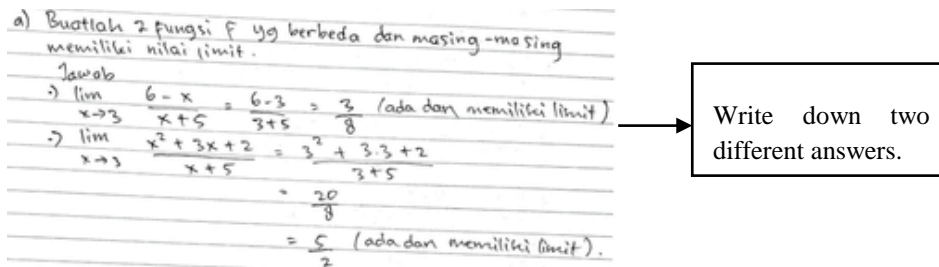 a) Buatlah 2 fungsi F yg berbeda dan masing-masing
memiliki nilai limit.
Jawab
·) lim x→3 6 - x / x + 5 = 6 - 3 / 3 + 5 = 3 / 8 (ada dan memiliki limit)
·) lim x→3 x² + 3x + 2 / x + 5 = 3² + 3.3 + 2 / 3 + 5
= 20 / 8
= 5 / 2 (ada dan memiliki limit).
Write down two
different answers.